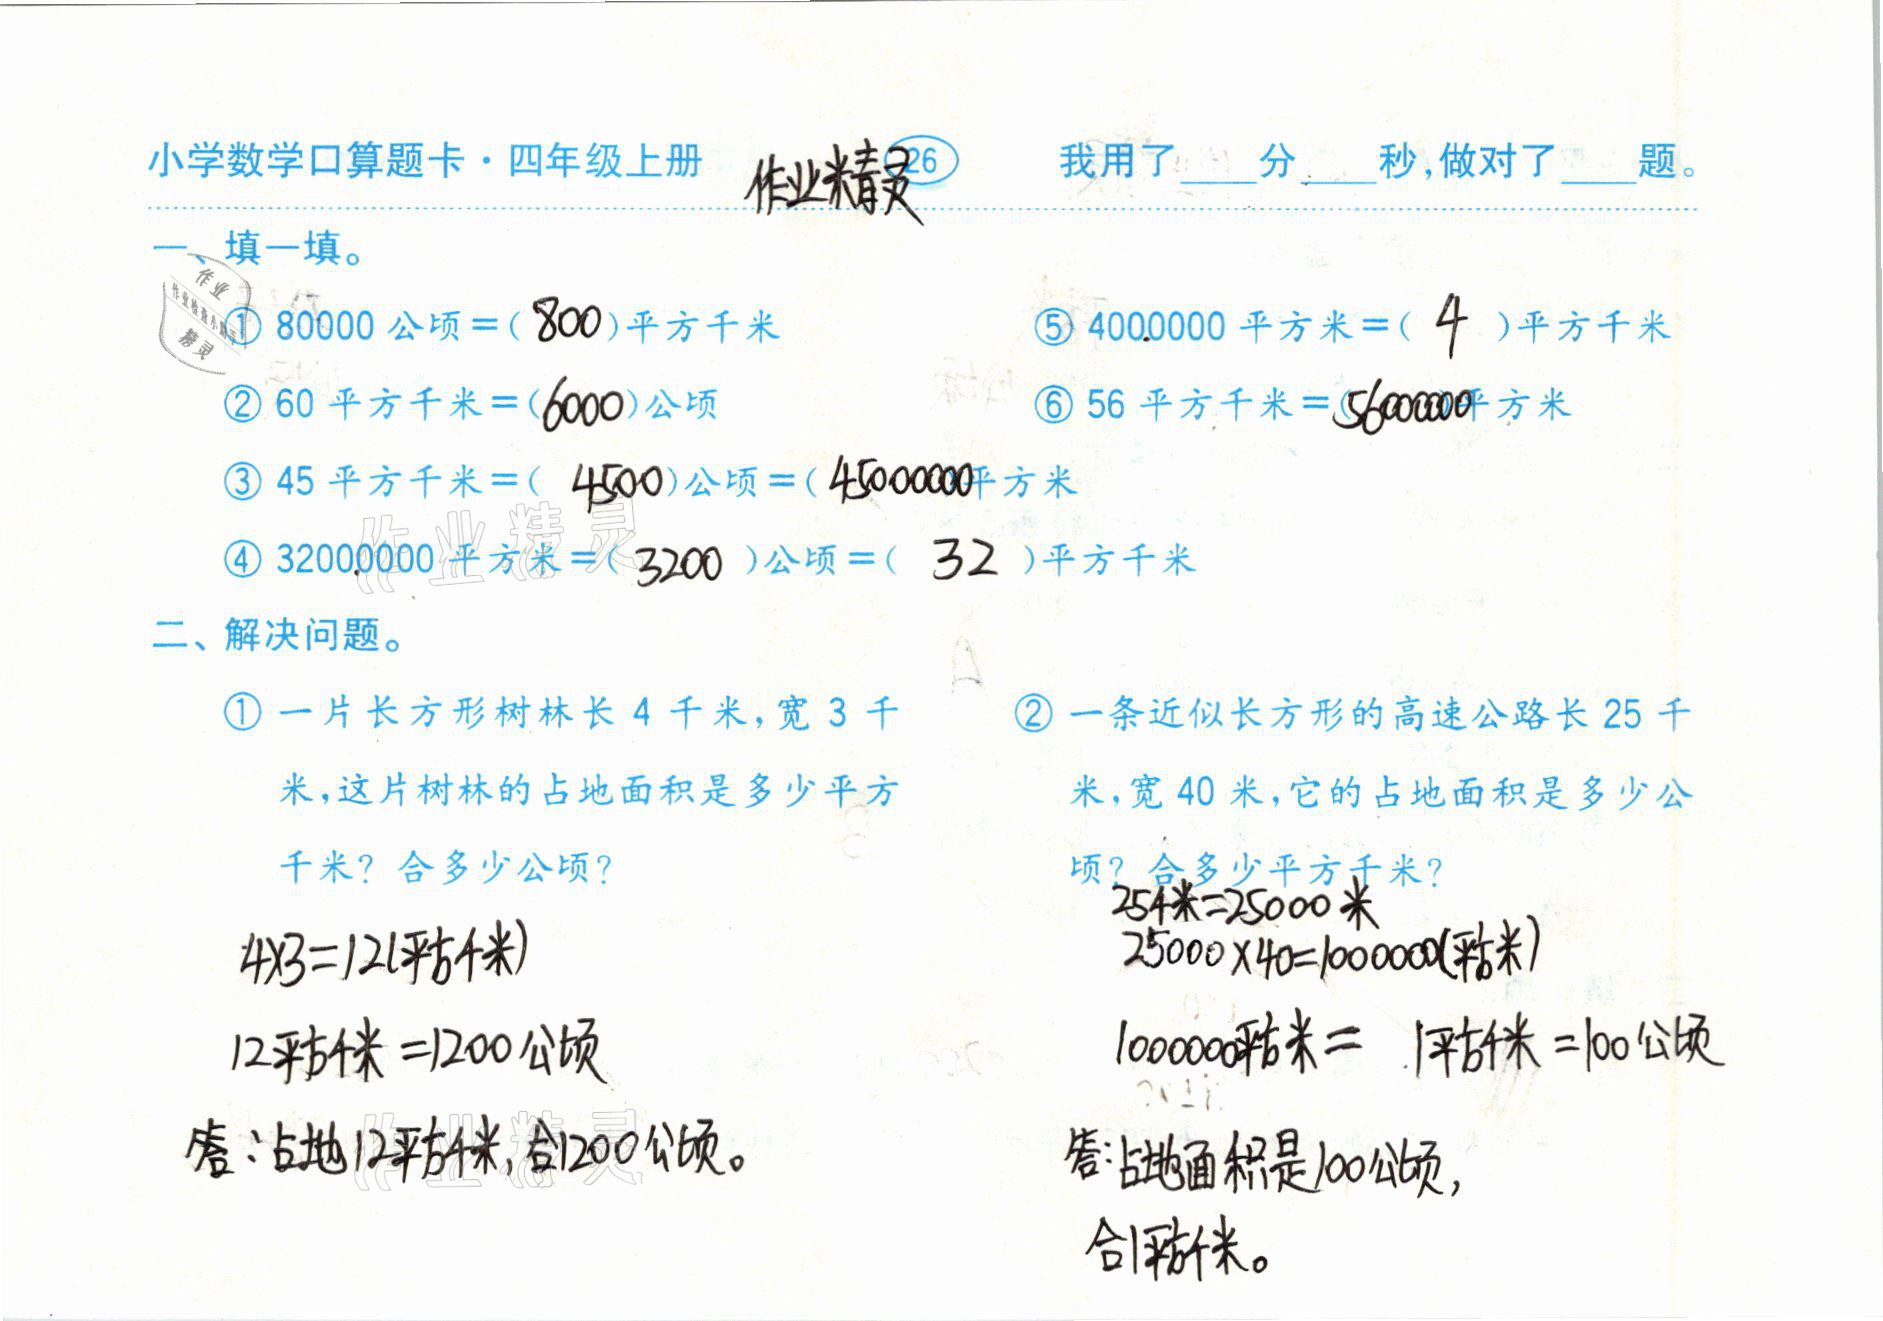 小学数学口算题卡·四年级上册 作业精灵 26 我用了____分____秒,做对了____题。
一、填一填。
作业
作业检查小助手
精灵
① 80000 公顷=(800)平方千米 ⑤ 4000000 平方米=( 4 )平方千米
② 60 平方千米=(6000)公顷 ⑥ 56 平方千米=(56000000)平方米
③ 45 平方千米=( 4500)公顷=(45000000平方米
④ 32000000 平方米=( 3200 )公顷=( 32 )平方千米
作业精灵
二、解决问题。
① 一片长方形树林长 4 千米,宽 3 千
米,这片树林的占地面积是多少平方
千米? 合多少公顷?
4×3=12(平方千米)
12平方千米=1200公顷
答:占地12平方千米,合1200公顷。
作业精灵
② 一条近似长方形的高速公路长 25 千
米,宽 40 米,它的占地面积是多少公
顷? 合多少平方千米?
25千米=25000米
25000×40=1000000(平方米)
1000000平方米= 1平方千米=100公顷
答:占地面积是100公顷,
合1平方千米。